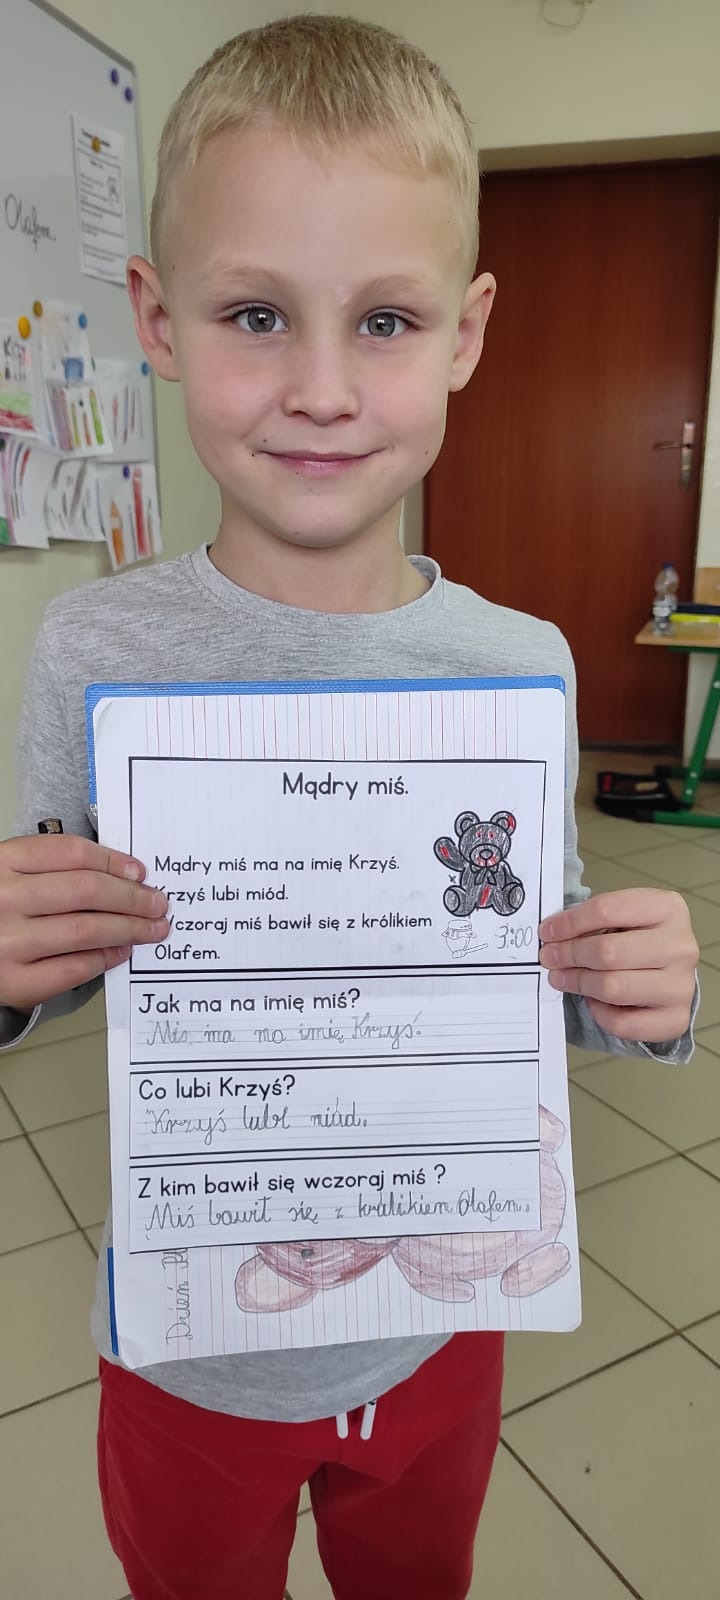 Olafem.
Mądry miś.
Mądry miś ma na imię Krzyś.
Krzyś lubi miód.
Wczoraj miś bawił się z królikiem
Olafem.
Jak ma na imię miś?
Miś ma na imię Krzyś.
Co lubi Krzyś?
Krzyś lubi miód.
Z kim bawił się wczoraj miś ?
Miś bawił się z krulikiem Olafem.
Dzień